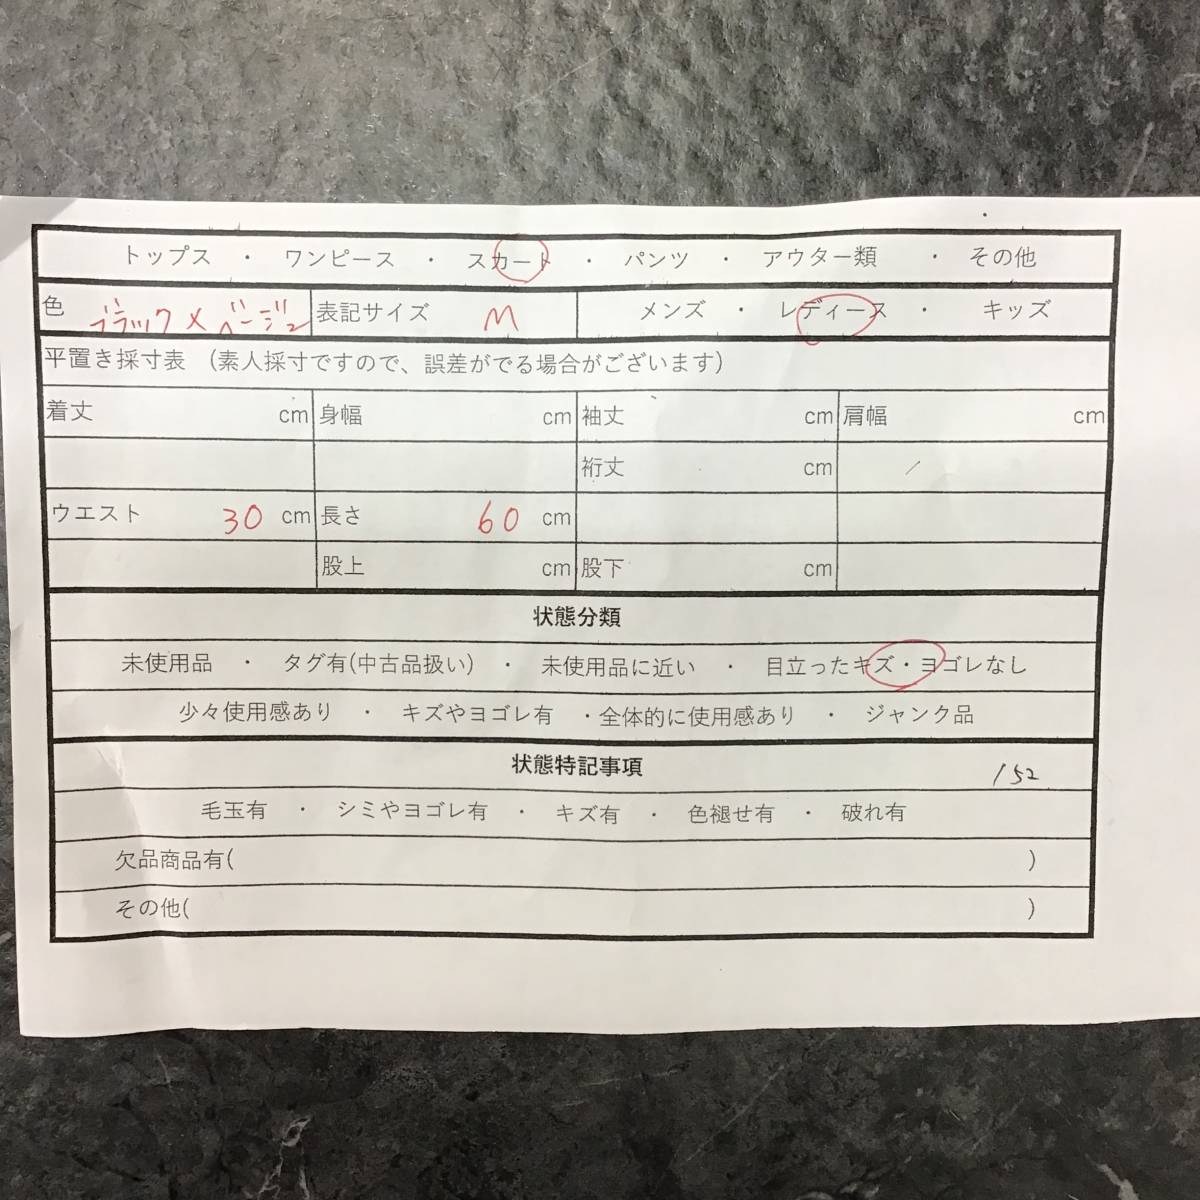 トップス ・ ワンピース ・ スカート ・ パンツ ・ アウター類 ・ その他
色 ブラック×ベージュ 表記サイズ M メンズ ・ レディース ・ キッズ
平置き採寸表 (素人採寸ですので、誤差がでる場合がございます)
着丈 cm 身幅 cm 袖丈 cm 肩幅 cm
裄丈 cm
ウエスト 30 cm 長さ 60 cm
股上 cm 股下 cm
状態分類
未使用品 ・ タグ有(中古品扱い) ・ 未使用品に近い ・ 目立ったキズ・ヨゴレなし
少々使用感あり ・ キズやヨゴレ有 ・全体的に使用感あり ・ ジャンク品
状態特記事項 152
毛玉有 ・ シミやヨゴレ有 ・ キズ有 ・ 色褪せ有 ・ 破れ有
欠品商品有( )
その他( )